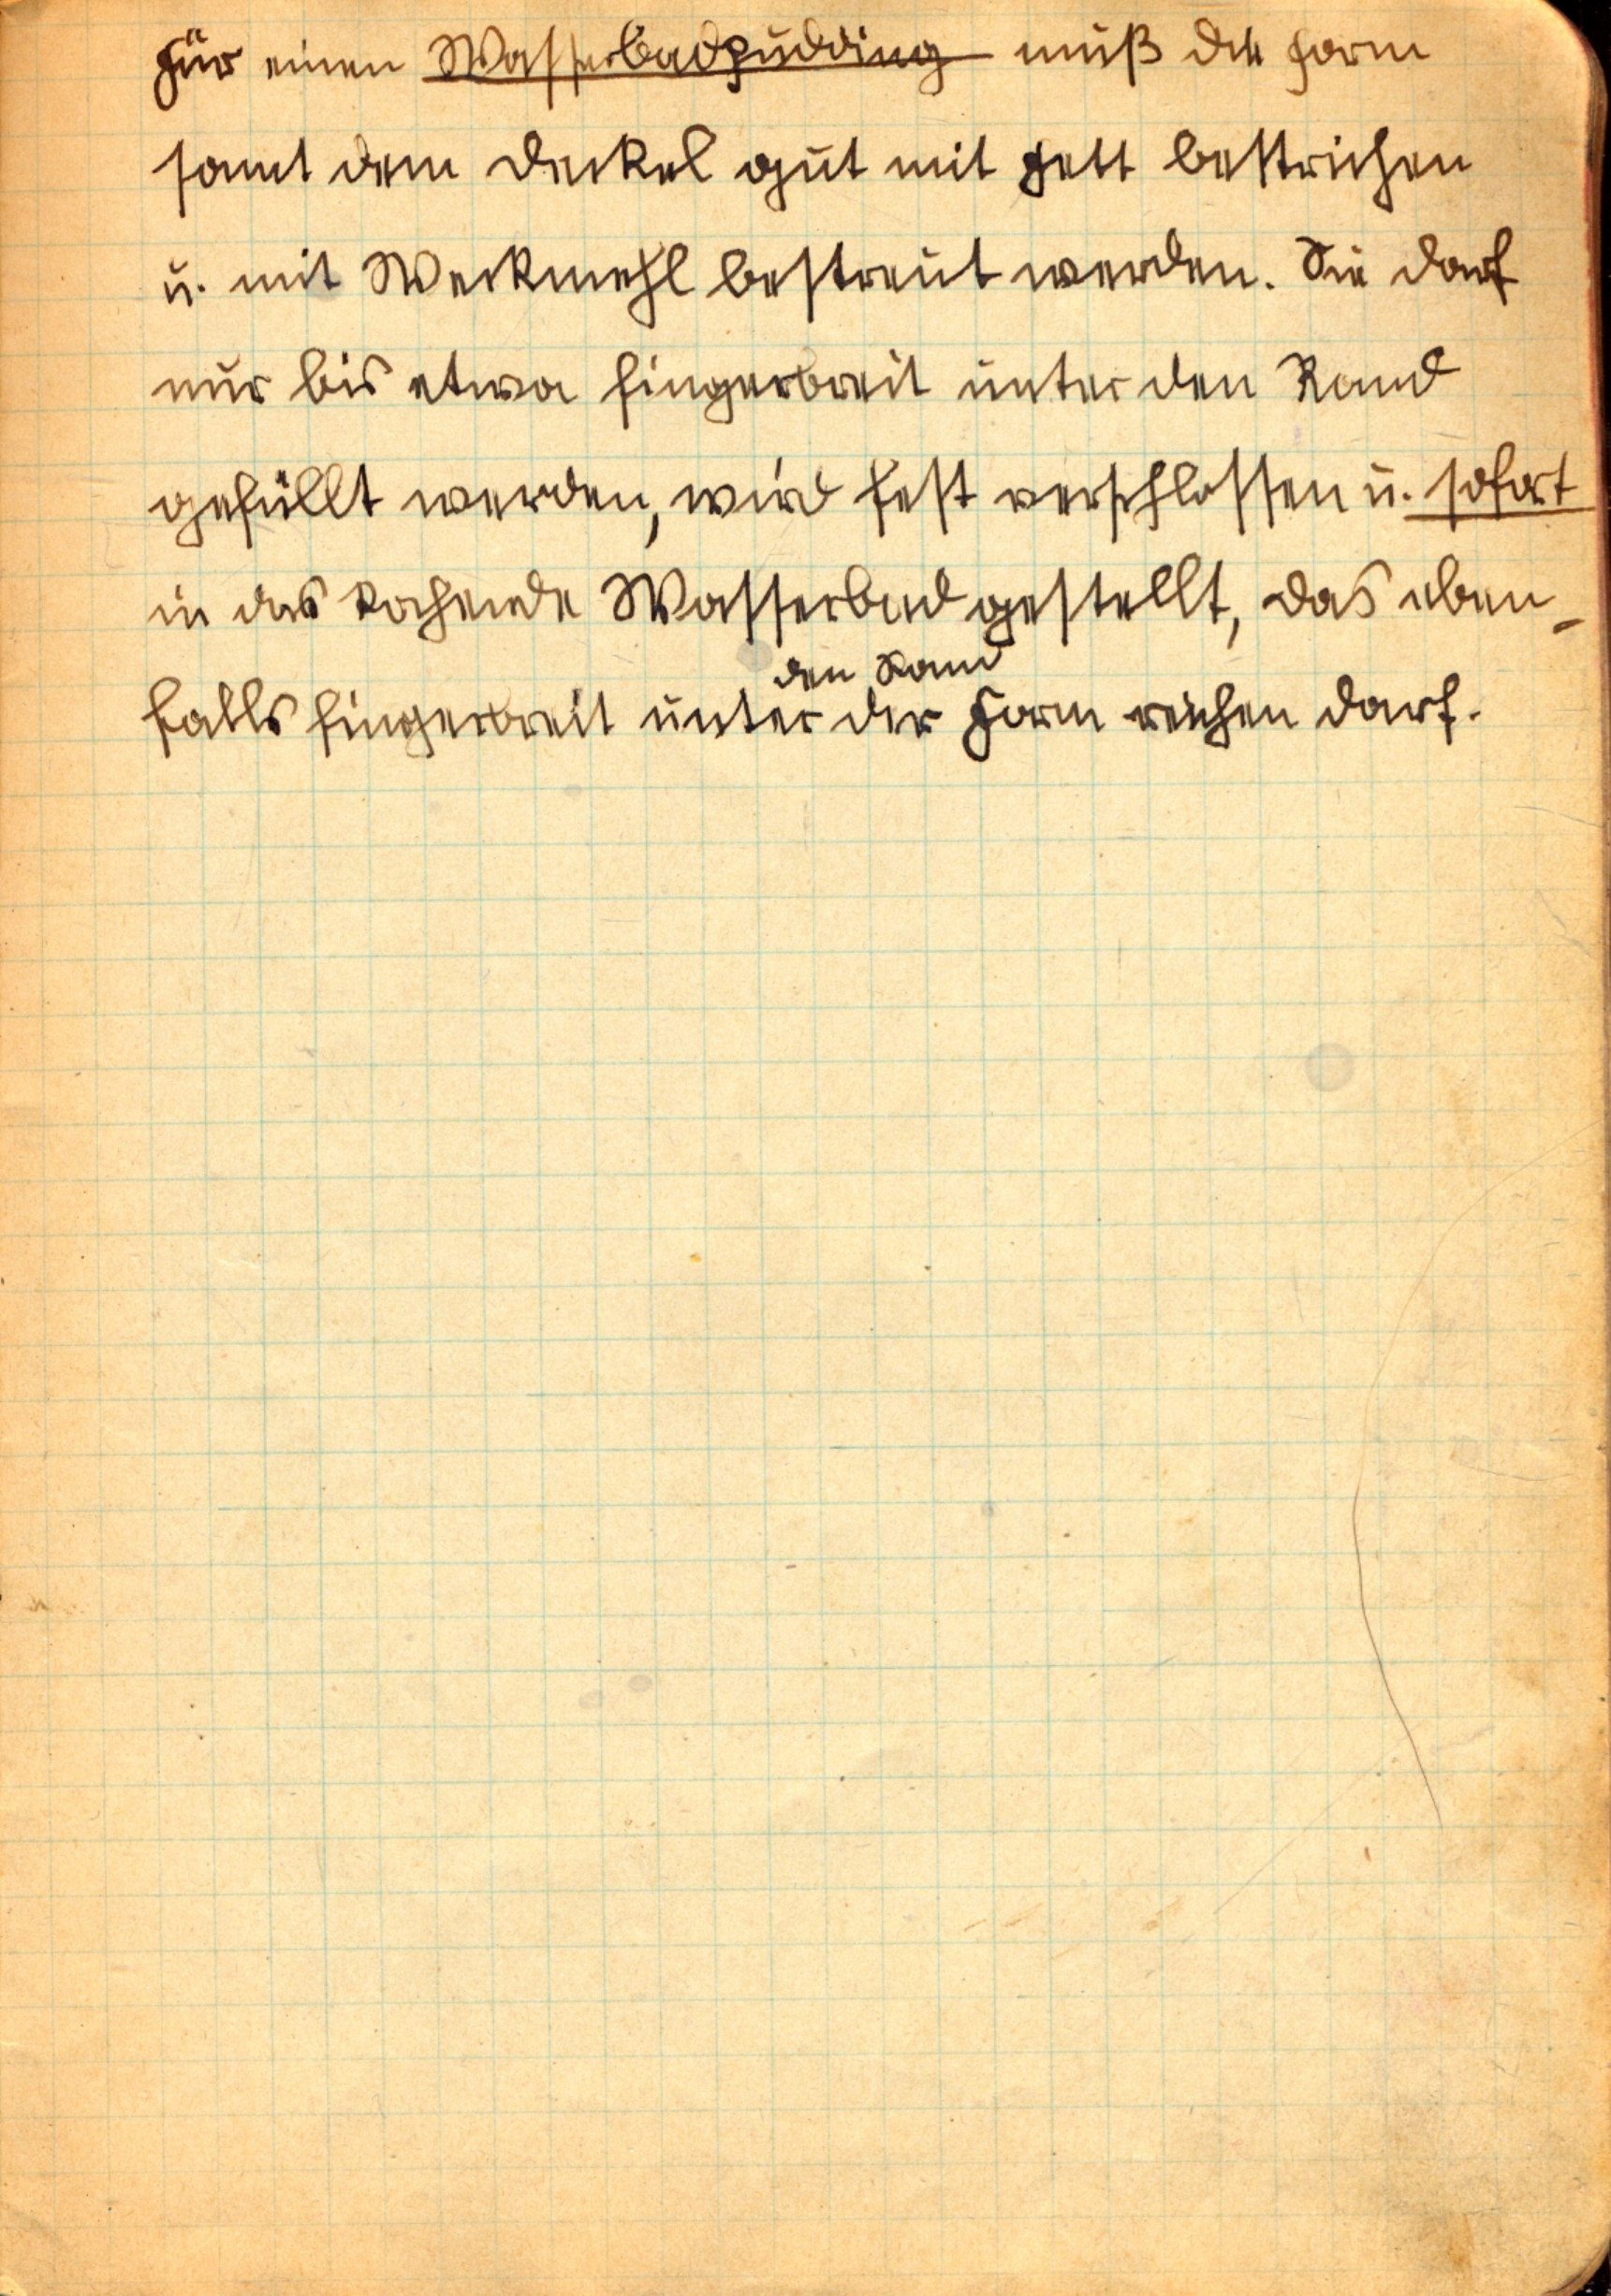 Für einen Wasserbadpudding muß die Form
samt dem Deckel gut mit Fett bestrichen
u. mit Weckmehl bestreut werden. Sie darf
nur bis etwa fingerbreit unter den Rand
gefüllt werden, wird fest verschlossen u. sofort
in das kochende Wasserbad gestellt, das eben-
den Rand
falls fingerbreit unter der Form reichen darf.